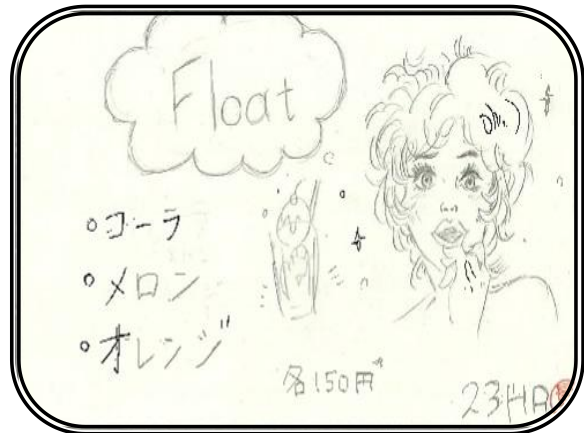 Float
oh..)
・コーラ
・メロン
・オレンジ
各150円
23HR